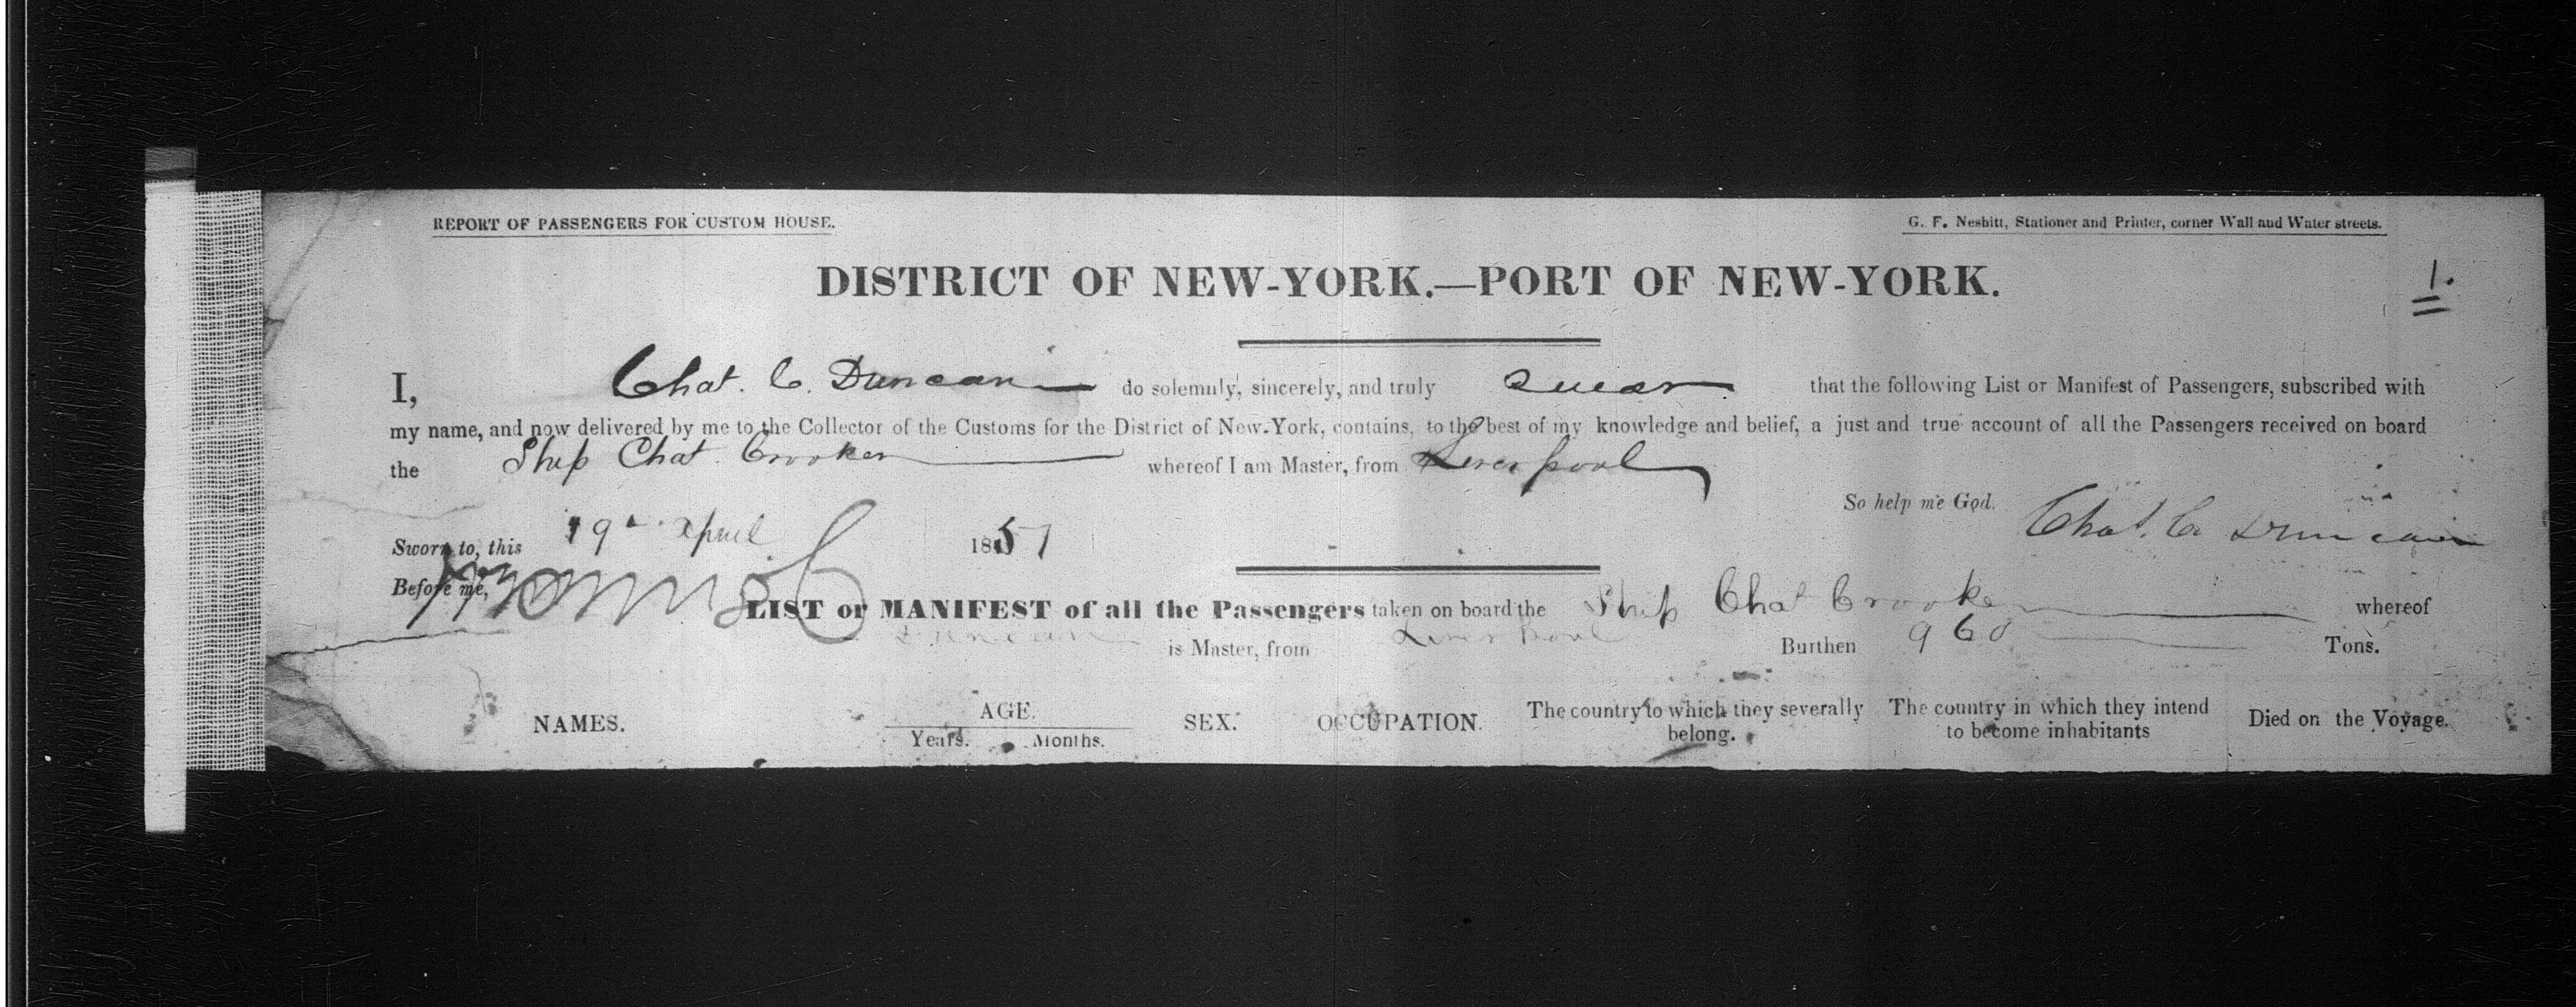 REPORT OF PASSENGERS FOR CUSTOM HOUSE.
G. F. Nesbitt, Stationer and Printer, corner Wall and Water streets.
DISTRICT OF NEW-YORK.—PORT OF NEW-YORK.
1.
I, Chas. C. Duncan do solemnly, sincerely, and truly Swear that the following List or Manifest of Passengers, subscribed with
my name, and now delivered by me to the Collector of the Customs for the District of New-York, contains, to the best of my knowledge and belief, a just and true account of all the Passengers received on board
the Ship Chas. Crooker whereof I am Master, from Liverpool
So help me God. Chas. C. Duncan
Sworn to, this 19th April 1851
Before me,
LIST or MANIFEST of all the Passengers taken on board the Ship Chas Crooker whereof
Duncan is Master, from Liverpool Burthen 960 Tons.
NAMES. AGE. SEX. OCCUPATION. The country to which they severally belong. The country in which they intend to become inhabitants Died on the Voyage.
Years. Months.